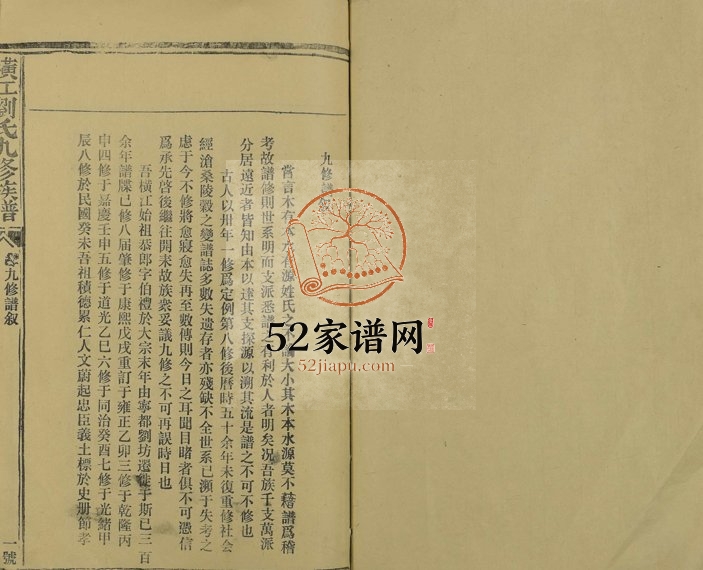 九修譜叙
嘗言木有本水有源姓氏之 大小其木本水源莫不藉譜爲稽
考故譜修則世系明而支派悉譜 有利於人者明矣况吾族千支萬派
分居遠近者皆知由本以達其支探源以溯其流是譜之不可不修也
古人以卅年一修爲定例第八修後曆時五十余年未復重修社会
經滄桑陵穀之變譜誌多數失遺存者亦殘缺不全世系已瀕于失考之
慮于今不修將愈寢愈失再至數傳則今日之耳聞目睹者俱不可憑信
爲承先啓後繼往開来故族衆妥議九修之不可再誤時日也
吾橫江始祖恭郎字伯禮於大宗末年由寧都劉坊遷徙于斯已三百
余年譜牒已修八届肇修于康熙戊戌重訂于雍正乙卯三修于乾隆丙
申四修于嘉慶壬申五修于道光乙巳六修于同治癸酉七修于光緒甲
辰八修於民國癸未吾祖積德累仁人文蔚起忠臣義士標於史册節孝
橫江劉氏九修族譜
九修譜叙
一號
52家谱网
52jiapu.com